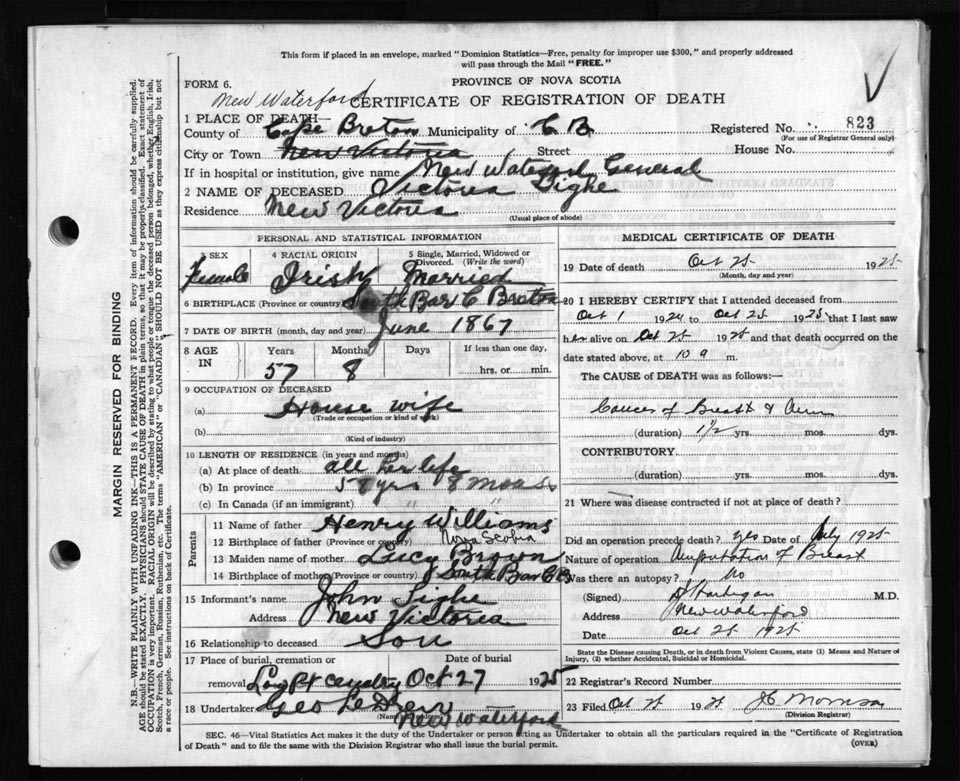 This form if placed in an envelope, marked "Dominion Statistics—Free, penalty for improper use $300," and properly addressed
will pass through the Mail "FREE."
FORM 6.
PROVINCE OF NOVA SCOTIA
New Waterford
CERTIFICATE OF REGISTRATION OF DEATH
1 PLACE OF DEATH—
County of Cape Breton Municipality of C B Registered No. 823
(For use of Registrar General only)
City or Town New Victoria Street House No.
If in hospital or institution, give name New Waterford General
2 NAME OF DECEASED Victoria Tighe
Residence New Victoria
(Usual place of abode)
PERSONAL AND STATISTICAL INFORMATION
3 SEX 4 RACIAL ORIGIN 5 Single, Married, Widowed or Divorced. (Write the word)
Female Irish Married
6 BIRTHPLACE (Province or country) South Bar C Breton
7 DATE OF BIRTH (month, day and year) June 1867
8 AGE IN Years Months Days If less than one day,
57 8 hrs. or min.
9 OCCUPATION OF DECEASED
(a) House wife
(Trade or occupation or kind of work)
(b)
(Kind of industry)
10 LENGTH OF RESIDENCE (in years and months)
(a) At place of death all her life
(b) In province 57 yrs 8 mos
(c) In Canada (if an immigrant) " "
Parents
11 Name of father Henry Williams
12 Birthplace of father (Province or country) Nova Scotia
13 Maiden name of mother Lucy Brown
14 Birthplace of mother (Province or country) South Bar C B
15 Informant's name John Tighe
Address New Victoria
16 Relationship to deceased Son
17 Place of burial, cremation or Date of burial
removal Low Pt Oct 27 1925
18 Undertaker Geo
(Name
New Waterford
MEDICAL CERTIFICATE OF DEATH
19 Date of death Oct 25 1925
(Month, day and year)
20 I HEREBY CERTIFY that I attended deceased from
Oct 1 1924 to Oct 25 1925 that I last saw
her alive on Oct 25 1925 and that death occurred on the
date stated above, at 10 m.
The CAUSE of DEATH was as follows:—
Cancer of Breast & Arm
(duration) 1½ yrs. mos. dys.
CONTRIBUTORY
(duration) yrs. mos. dys.
21 Where was disease contracted if not at place of death?
Did an operation precede death? yes Date of July 1925
Nature of operation Amputation of Breast
Was there an autopsy? No
(Signed) Hartigan M.D.
Address New Waterford
Date Oct 25 1925
State the Disease causing Death, or in death from Violent Causes, state (1) Means and Nature of
Injury, (2) whether Accidental, Suicidal or Homicidal.
22 Registrar's Record Number
23 Filed Oct 1925 J C Morrison
(Division Registrar)
SEC. 46—Vital Statistics Act makes it the duty of the Undertaker or person acting as Undertaker to obtain all the particulars required in the "Certificate of Registration
of Death" and to file the same with the Division Registrar who shall issue the burial permit.
(OVER)
MARGIN RESERVED FOR BINDING
N.B.—WRITE PLAINLY WITH UNFADING INK—THIS IS A PERMANENT RECORD. Every item of information should be carefully supplied.
AGE should be stated EXACTLY. PHYSICIANS should STATE CAUSE OF DEATH in plain terms, so that it may be properly classified. Exact statement of
OCCUPATION is very important. RACIAL ORIGIN will be described by stating to what people or tongue the deceased person belonged, whether English, Irish,
Scotch, French, German, Russian, Ruthenian, etc. The terms "AMERICAN" or "CANADIAN" SHOULD NOT BE USED as they express citizenship but not
a race or people. See instructions on back of Certificate.